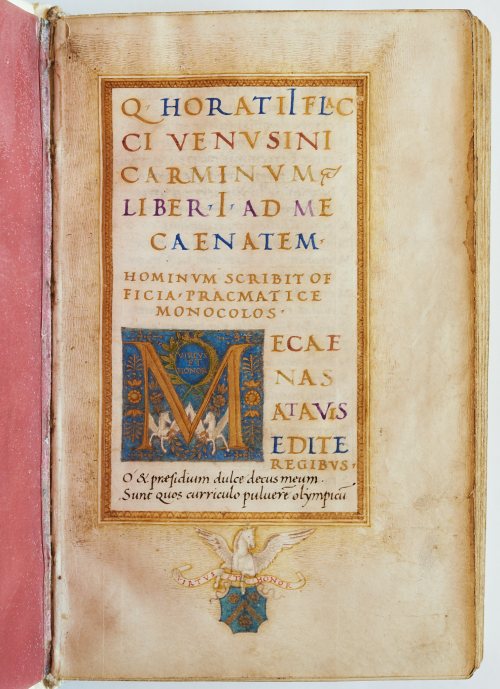 Q· HORATII FLAC
CI VENVSINI
CARMINVM
LIBER· I· AD ME
CAENATEM·
HOMINVM SCRIBIT OF
FICIA· PRACMATICE
MONOCOLOS·
VIRTVS
ET
HONOR
MECAE
NAS
ATAVIS
EDITE
REGIBVS·
O' & præsidium dulce decus meum·
Sunt quos curriculo pulverē olympicū
VIRTVS ET HONOR